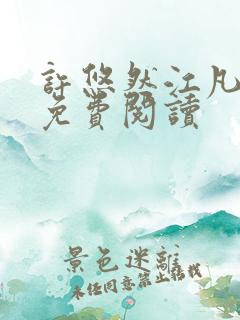 許悠然江凡
免費閱讀
景色迷離
未經同意禁止搭我